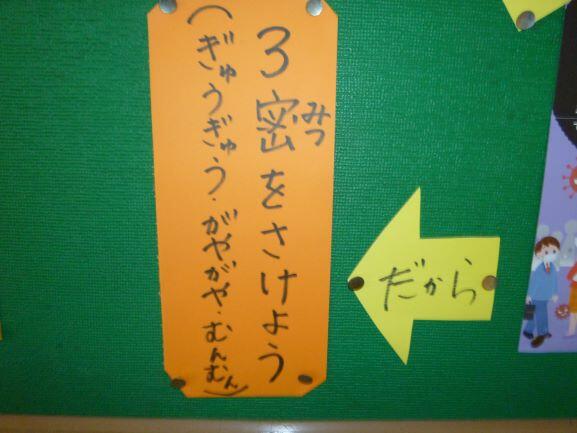 だから
3密をさけよう
みつ
(ぎゅうぎゅう・がやがや・むんむん)